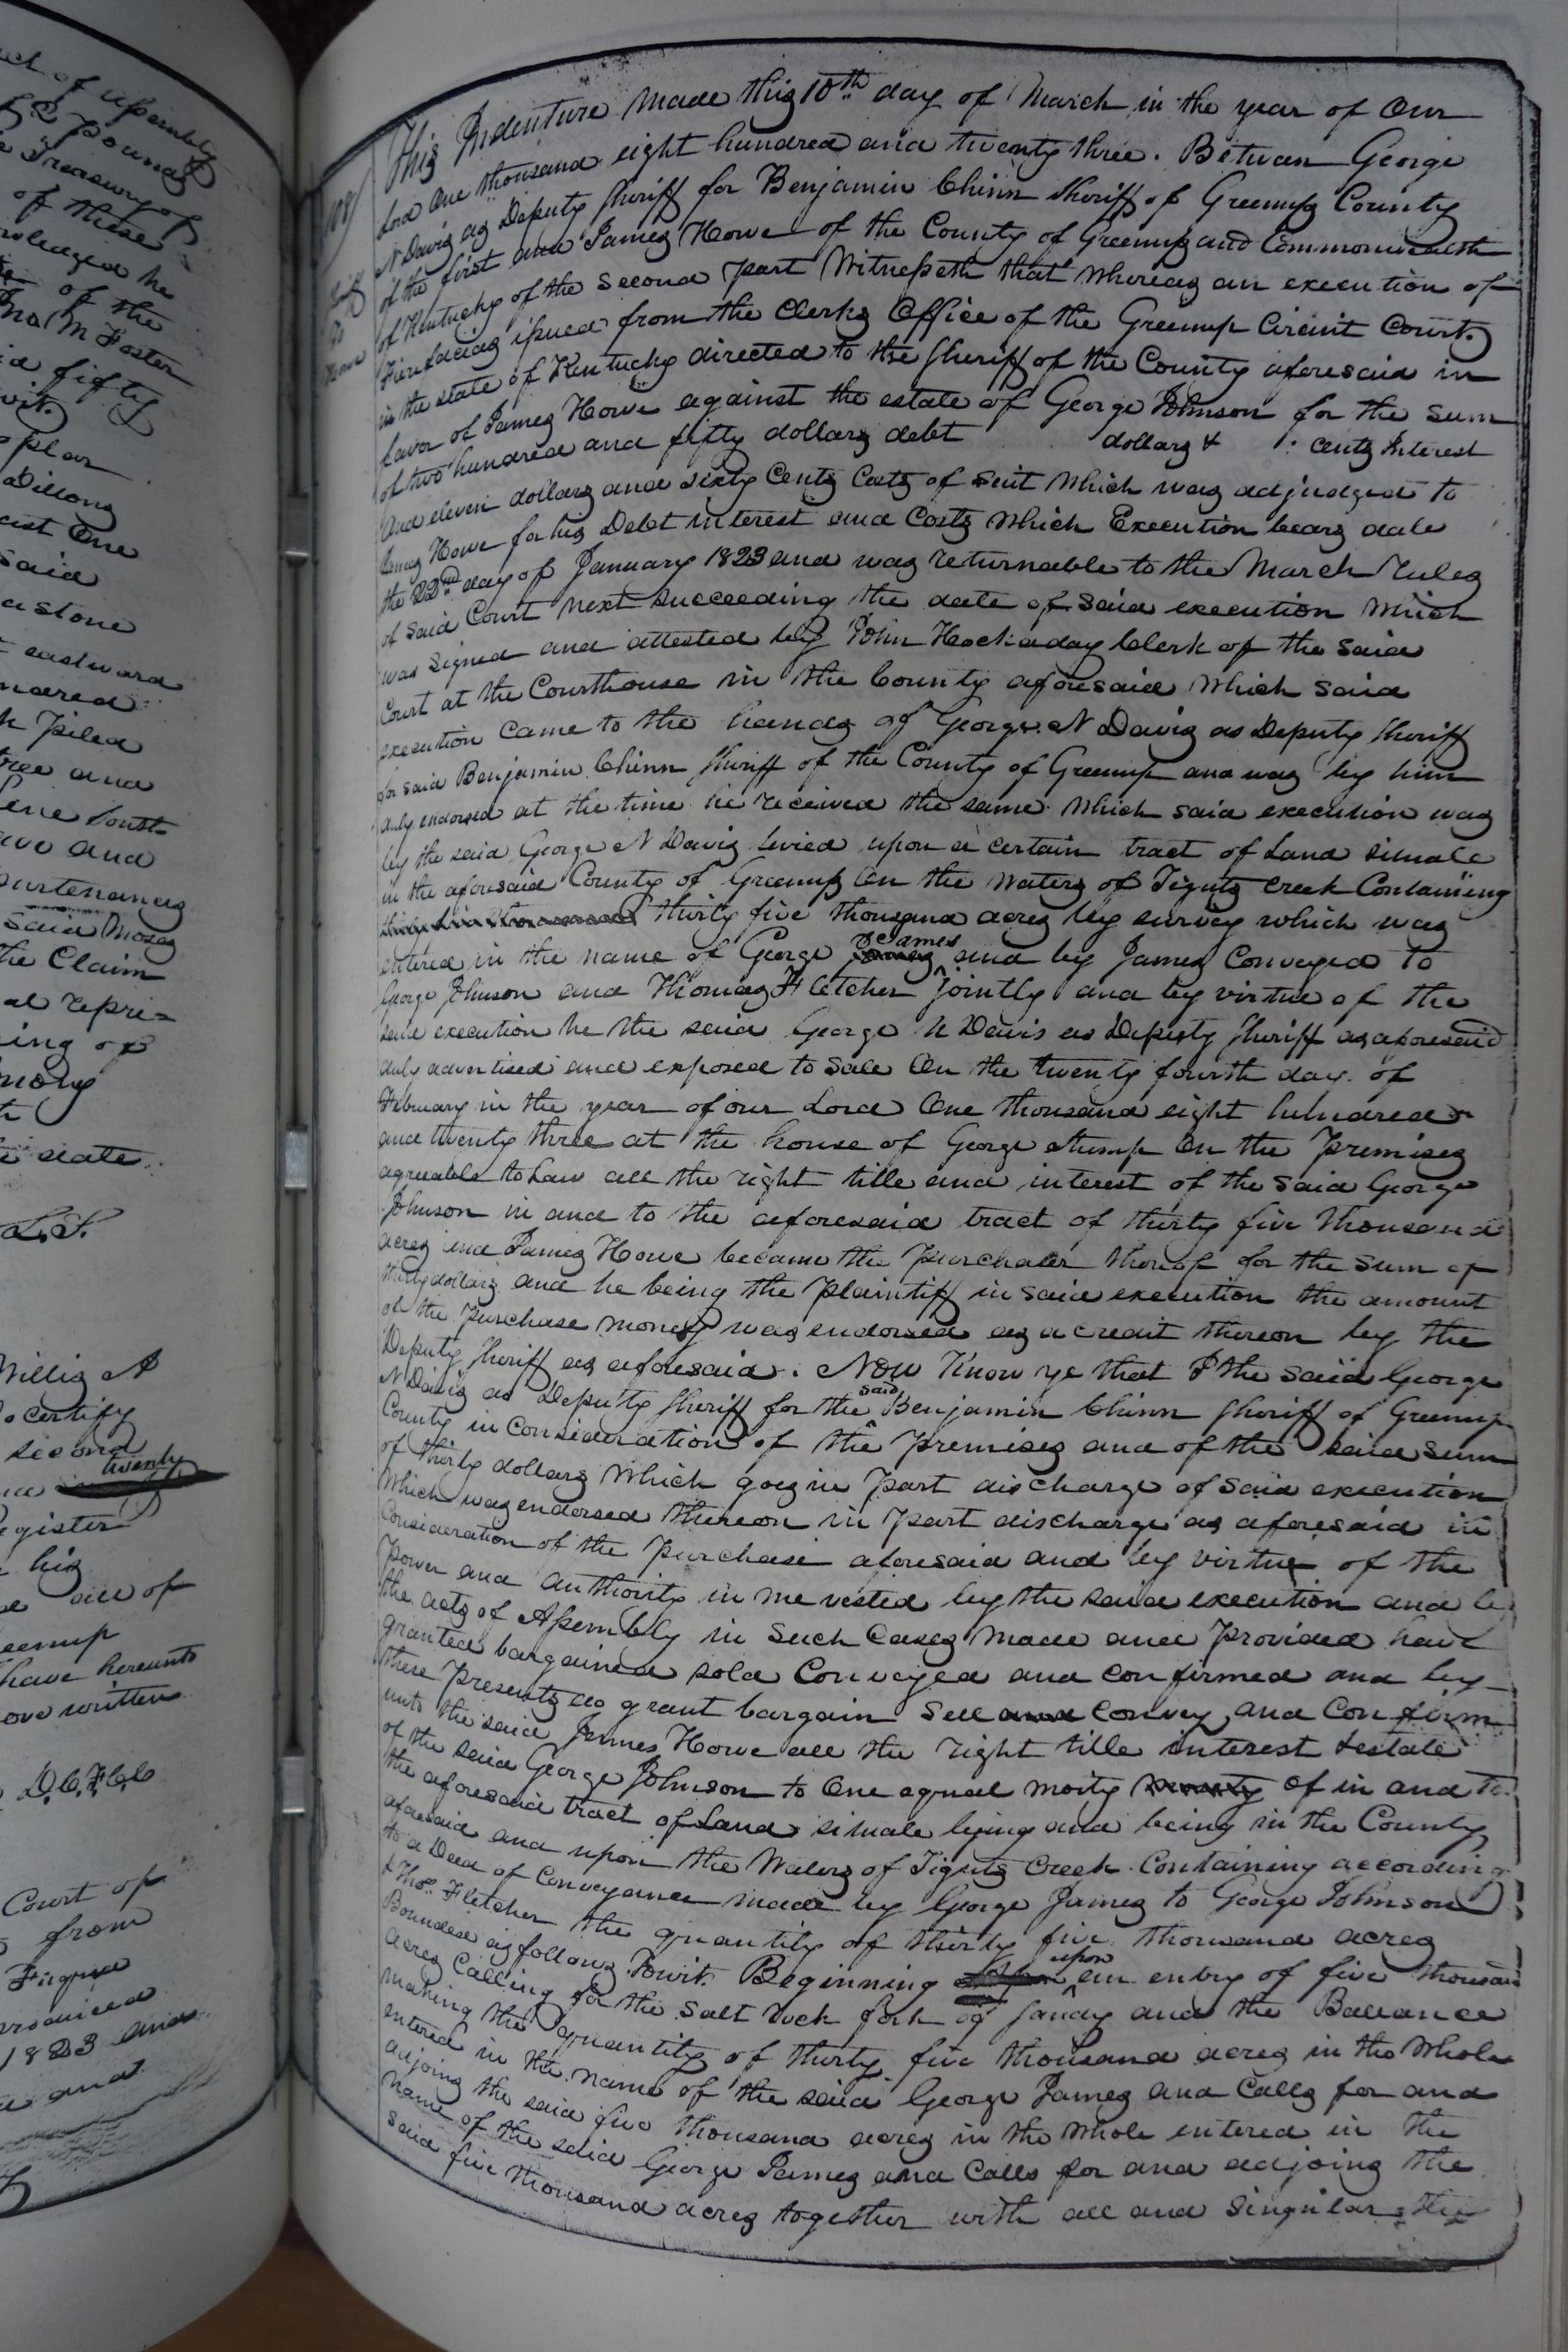 ch of assembly
pounds
Treasury of
of these
owledged he
of the
Tho M Foster
id fifty
wit.
plar
Dillons
east One
said
a stone
eastward
ndred
k Piled
tree and
line Const
ave and
purtenances
said Moses
the Claim
al repri=
ing of
mony
date
L.S.
Willis A
Do certify
second
twenty
egister
his
all of
reenup
have hereunto
ove written
D.C.F.C.C.
Court of
from
Fuqua
roduced
1823 and
and
108/
Shff
To
Howe
This Indenture made this 10th day of March in the year of Our
Lord One thousand eight hundred and twenty three. Between George
N Davis as Deputy Sheriff for Benjamin Chinn Sheriff of Greenup County
of the first and James Howe of the County of Greenup and Commonwealth
of Kentucky of the second part Witnesseth that whereas an execution of
Fierifacias issued from the Clerks Office of the Greenup Circuit Court.
in the state of Kentucky directed to the Sheriff of the County aforesaid in
favor of James Howe against the estate of George Johnson for the sum
of two hundred and fifty dollars debt dollars & cents Interest
And eleven dollars and sixty Cents Costs of suit which was adjudged to
James Howe for his Debt interest and Costs which Execution bears date
the 22nd day of January 1823 and was returnable to the March rules
of said Court next succeeding the date of said execution which
was signed and attested by John Hockaday Clerk of the said
Court at the Courthouse in the County aforesaid which said
execution came to the hands of George N Davis as Deputy Sheriff
for said Benjamin Chinn Sheriff of the County of Greenup and was by him
duly endorsed at the time he received the same which said execution was
by the said George N Davis levied upon a certain tract of Land situate
in the aforesaid County of Greenup On the waters of Tiguts Creek Containing
thirty five thousand acres by survey which was
entered in the name of George James and by James Conveyed to
George Johnson and Thomas Fletcher jointly and by virtue of the
said execution he the said George N Davis as Deputy Sheriff as aforesaid
duly advertised and exposed to sale On the twenty fourth day of
February in the year of our Lord One thousand eight hundred
and twenty three at the house of George Stump On the Premises
agreeable to Law all the right title and interest of the said George
Johnson in and to the aforesaid tract of thirty five thousand
acres and James Howe became the Purchaser thereof for the sum of
thirty dollars and he being the Plaintiff in said execution the amount
of the Purchase money was endorsed as a credit thereon by the
Deputy Sheriff as aforesaid. Now Know ye that I the said George
N Davis as Deputy Sheriff for the said Benjamin Chinn Sheriff of Greenup
County in consideration of the Premises and of the said sum
of thirty dollars which goes in Part discharge of said execution
which was endorsed thereon in Part discharge as aforesaid in
Consideration of the Purchase aforesaid and by virtue of the
Power and authority in me vested by the said execution and by
the acts of Assembly in such Cases made and Provided have
granted bargained sold Conveyed and confirmed and by
these Presents do grant bargain Sell and Convey, and Confirm
unto the said James Howe all the right title interest & estate
of the said George Johnson to One equal moity of in and to
the aforesaid tract of Land situate lying and being in the County
aforesaid and upon the Waters of Tiguts Creek. Containing according
to a Deed of Conveyance made by George James to George Johnson
& Thos. Fletcher the quantity of thirty five thousand acres
Bounded as follows Towit. Beginning upon an entry of five thousand
acres Calling for the Salt Lick fork of Sandy and the Ballance
making the quantity of thirty five thousand acres in the Whole
entered in the name of the said George James and Calls for and
adjoing the said five thousand acres in the Whole entered in the
name of the said George James and Calls for and adjoing the
said five thousand acres together with all and singular the